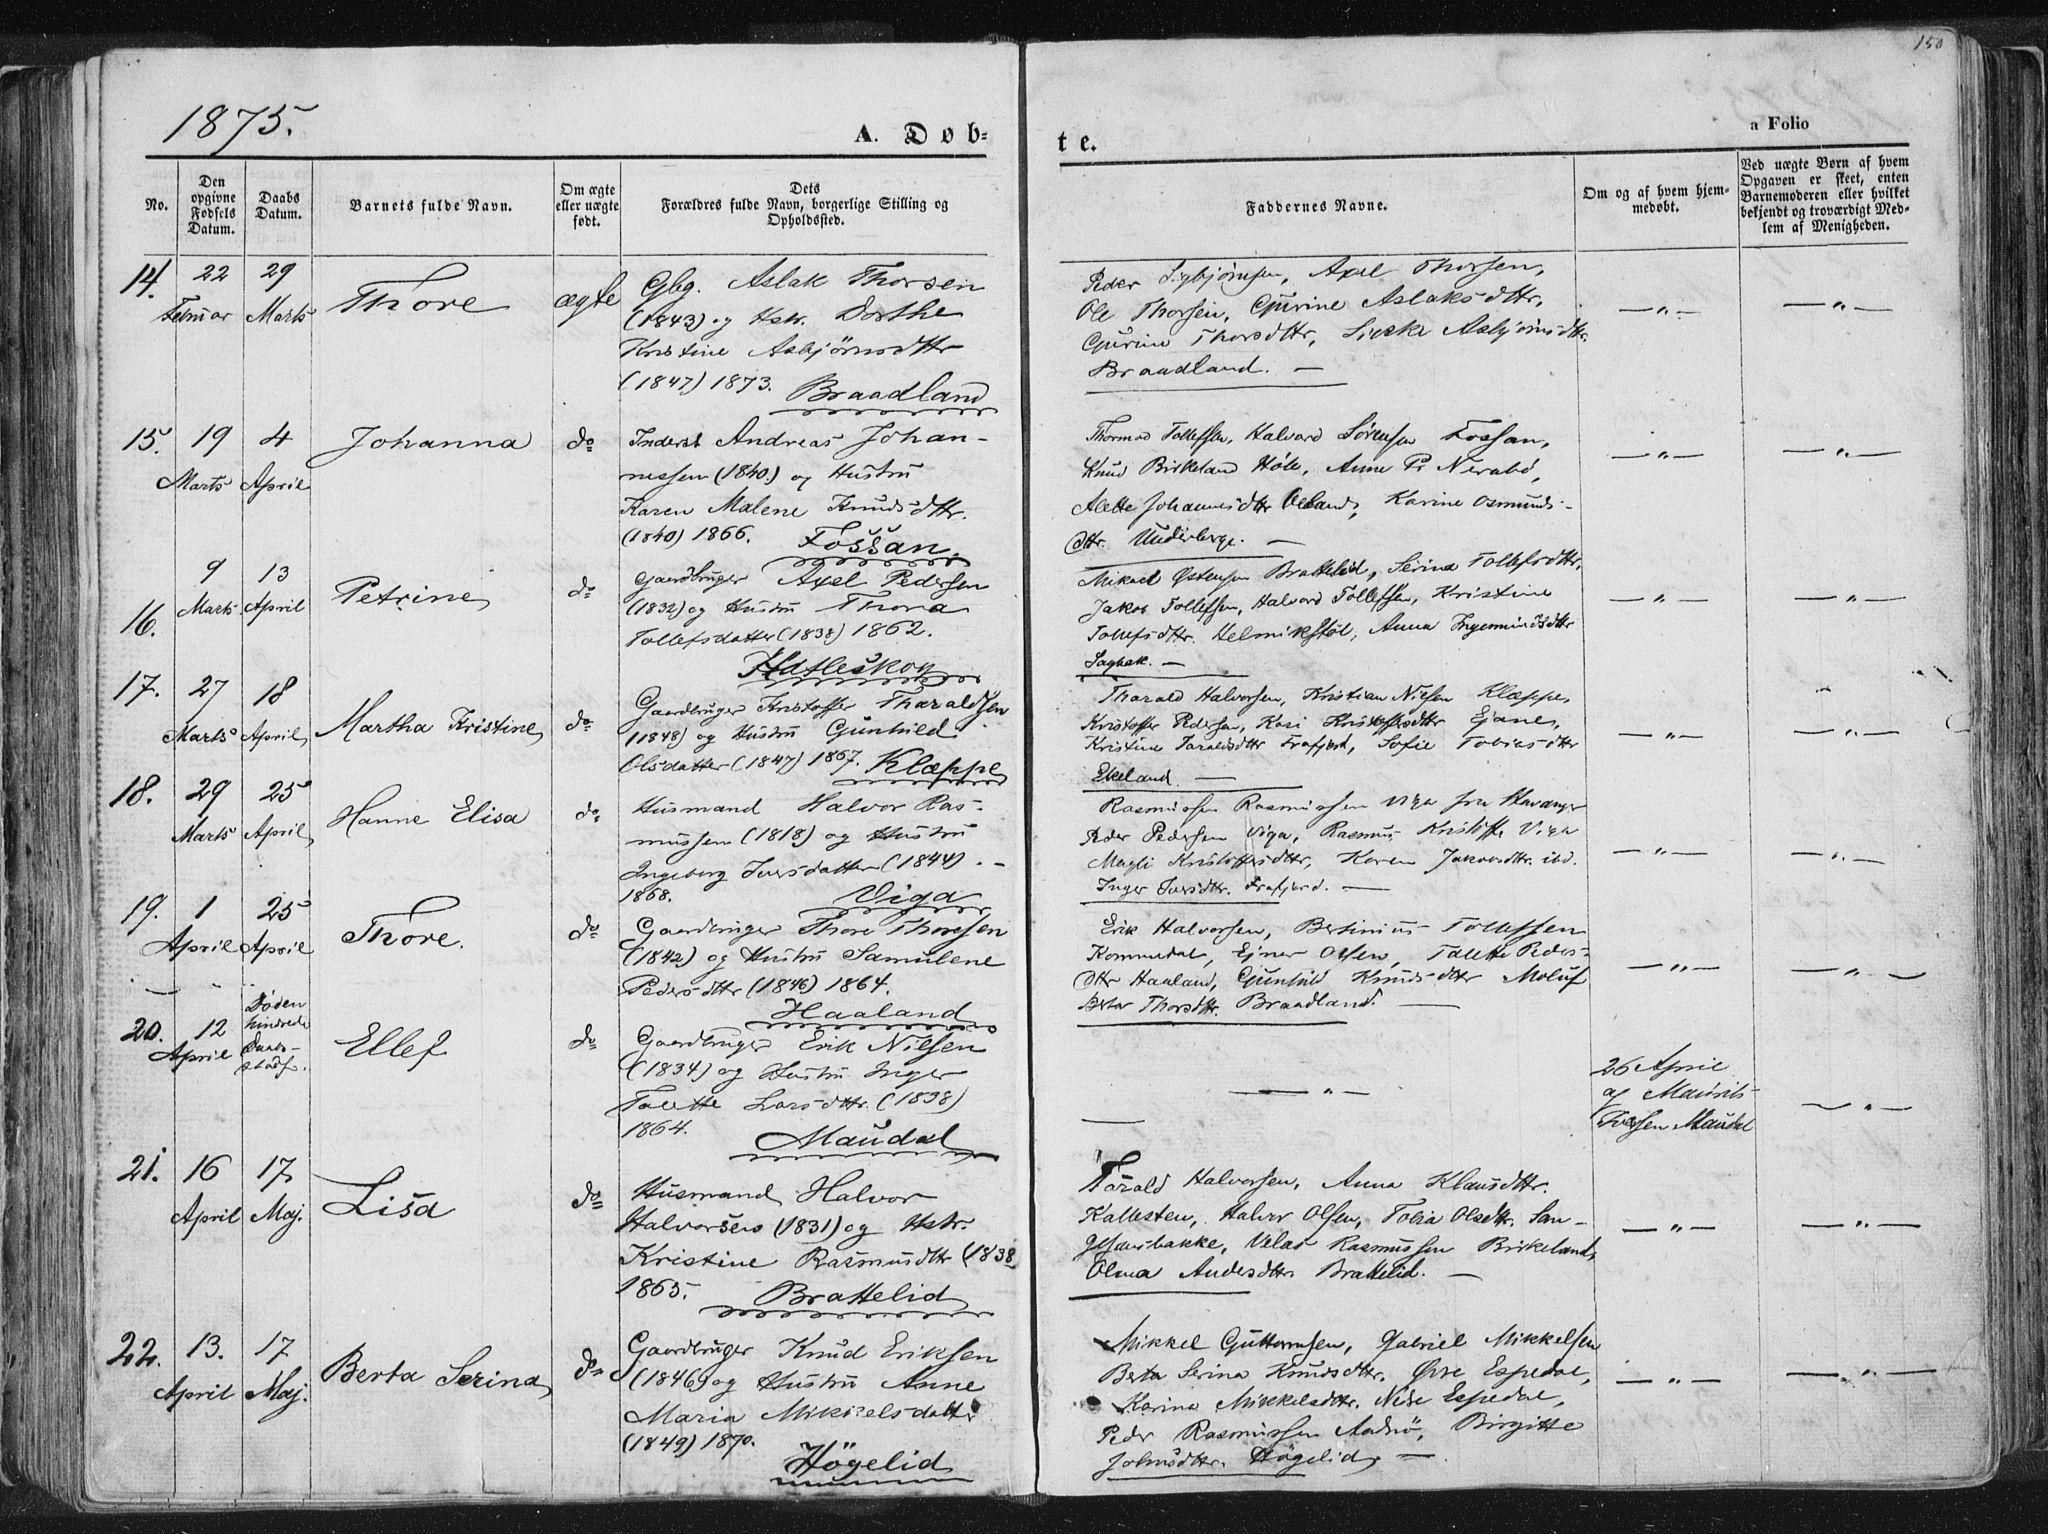 150
1875.
A. Døb-
te.
a Folio
No.
Den opgivne Fødsels Datum.
Daabs Datum.
Barnets fulde Navn.
Om ægte eller uægte født.
Dets Forældres fulde Navn, borgerlige Stilling og Opholdssted.
Faddernes Navne.
Om og af hvem hjemmedøbt.
Ved uægte Børn af hvem Opgaven er skeet, enten Barnemoderen eller hvilket bekjendt og troværdigt Medlem af Menigheden.
14. 22 Februar 29 Marts Thore ægte
Gbg. Aslak Thorsen
(1843) og Hstr. Dorthe
Kristine Asbjörnsdttr
(1847) 1873. Braadland
Peder Sigbjørnsen, Axel Thorsen,
Ole Thorsen, Gurine Aslaksdttr,
Gurine Thorsdttr, Siske Asbjörnsdttr.
Braadland. —
— " — — " —
15. 19 Marts 4 April Johanna do
Inderst Andreas Johan-
nessen (1840) og Hustru
Karen Malene Knudsdttr.
(1840) 1866. Fossan.
Thormod Tollefsen, Halvard Sörensen Fossan,
Knud Birkeland Høle, Anne P. Nerabö,
Alette Johannesdttr Øeland, Karine Osmunds-
dttr. Underberge. —
— " — — " —
16. 9 Marts 13 April Petrine do
Gaardbruger Axel Pedersen
(1832) og Hustru Thora
Tollefsdatter (1838) 1862.
Hatleskog
Mikael Østensen Brattelid, Serina Tollefsdttr,
Jakob Tollefsen, Halvard Tollefsen, Kristine
Tollefsdttr. Helmikstøl, Anna Ingemundsdttr
Sagbak. —
— " — — " —
17. 27 Marts 18 April Martha Kristine do
Gaardbruger Kristoffer Tharaldsen
(1848) og Hustru Gunhild
Olsdatter (1847) 1867. Klæppe
Tharald Halvorsen, Kristian Nilsen Klæppe,
Kristoffer Pedersen, Kari Kristoffersdttr Ejane,
Kristine Taraldsdttr Frafjord, Sofie Tobiasdttr
Ekeland. —
— " — — " —
18. 29 Marts 25 April Hanne Elisa do
Husmand Halvor Ras-
mussen (1818) og Hustru
Ingeborg Iversdatter (1844). -
1868. Viga
Rasmussen Rasmussen Viga fra Stavanger
Peder Pedersen Viga, Rasmus Kristoffe Viga
Magli Kristoffersdttr, Karen Jakobsdttr. ibd.
Inger Iversdttr. Frafjord. —
— " — — " —
19. 1 April 25 April Thore. do
Gaardbruger Thore Thoresen
(1842) og Hustru Samulene
Pedersdttr (1846) 1864.
Haaland
Erik Halvorsen, Bertinius Tollefsen
Kommedal, Ejner Olsen, Talette Peders-
dttr Haaland, Gunhild Knudsdttr Moluf
Berta Thorsdttr. Braadland —
— " — — " —
20. 12 April Døden hindrede Daabs- stadf. Ellef do
Gaardbruger Erik Nilsen
(1834) og Hustru Inger
Talette Larsdttr. (1838)
1864. Maudal
— " —
26 April
af Maurits
Tollefsen Maudal
— " —
21. 16 April 17 Maj. Lisa do
Husmand Halvor
Halvorsen (1831) og Hstr.
Kristine Rasmusdttr (1838
1865. Brattelid
Torald Halvorsen, Anna Klausdttr.
Kallesten, Halvor Olsen, Tobia Olsdttr. San-
gesandbakke, Velas Rasmussen Birkeland,
Olena Andersdttr. Brattelid. —
— " — — " —
22. 13. April 17 Maj. Berta Serina do
Gaardbruger Knud Eriksen
(1846) og Hustru Anne
Maria Mikkelsdatter
(1849) 1870.
Högelid
Mikkel Guttormsen, Gabriel Mikkelsen
Berta Serina Knudsdttr, Øvre Espedal,
Karina Mikkelsdttr. Nedre Espedal,
Peder Rasmussen Aadnö, Birgitte
Johnsdttr. Högelid. —
— " — — " —